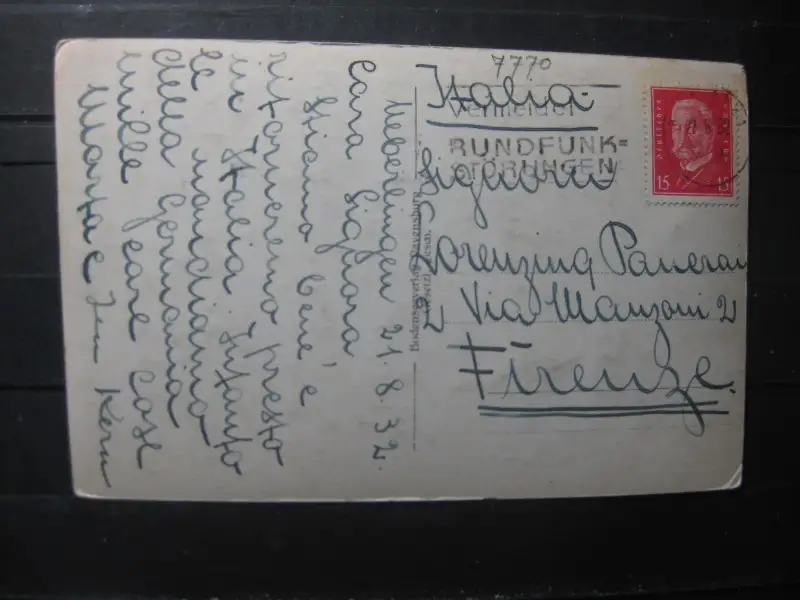 Ueberlingen 21.8.32.
Cara Signora
Stiamo bene e
ritorneremo presto
in Italia. Intanto
le mandiamo
della Germania
mille care cose
Marta e Kern
7770
Italia.
Vermeidet
RUNDFUNK=
STÖRUNGEN
Signora
Lorenzina Panerai
Via Manzoni 2
Firenze.
Bodenseeverlag Ravensburg
15 15